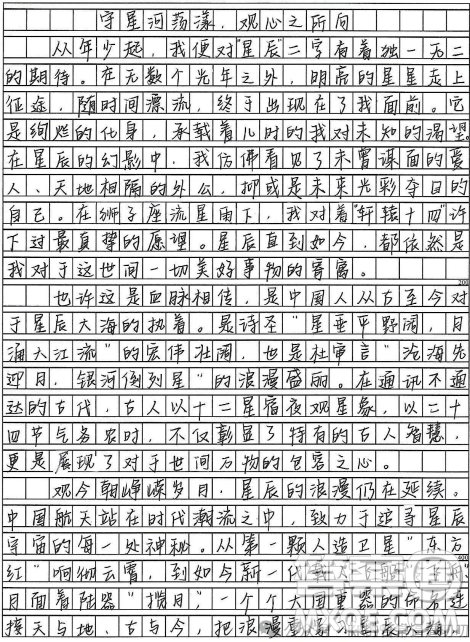 守星河荡漾，观心之所向
从年少起，我便对“星辰”二字有着独一无二
的期待。在无数个光年之外，明亮的星星走上
征途，随时间漂流，终于出现在了我面前。它
是绚烂的化身，承载着儿时的我对未知的渴望。
在星辰的幻影中，我仿佛看见了未曾谋面的爱
人、天地相隔的外公，抑或是未来光彩夺目的
自己。在狮子座流星雨下，我对着“轩辕十四”许
下过最真挚的愿望。星辰直到如今，都依然是
我对于这世间一切美好事物的寄寓。
200
也许这是血脉相传，是中国人从古至今对
于星辰大海的执着。是诗圣“星垂平野阔，月
涌大江流”的宏伟壮阔，也是杜审言“沧海先
迎月，银河倒列星”的浪漫盛丽。在通讯不通
达的古代，古人以十二星宿夜观星象，以二十
四节气务农时，不仅彰显了特有的古人智慧，
更是展现了对于世间万物的包容之心。
观今朝峥嵘岁月，星辰的浪漫仍在延续。
中国航天站在时代潮流之中，致力于追寻星辰
宇宙的每一处神秘。从第一颗人造卫星“东方
400
红”响彻云霄，到如今新一代载人飞船“
月面着陆器“揽月”，一个个大国重器的命名连
接天与地、古与今，把浪漫